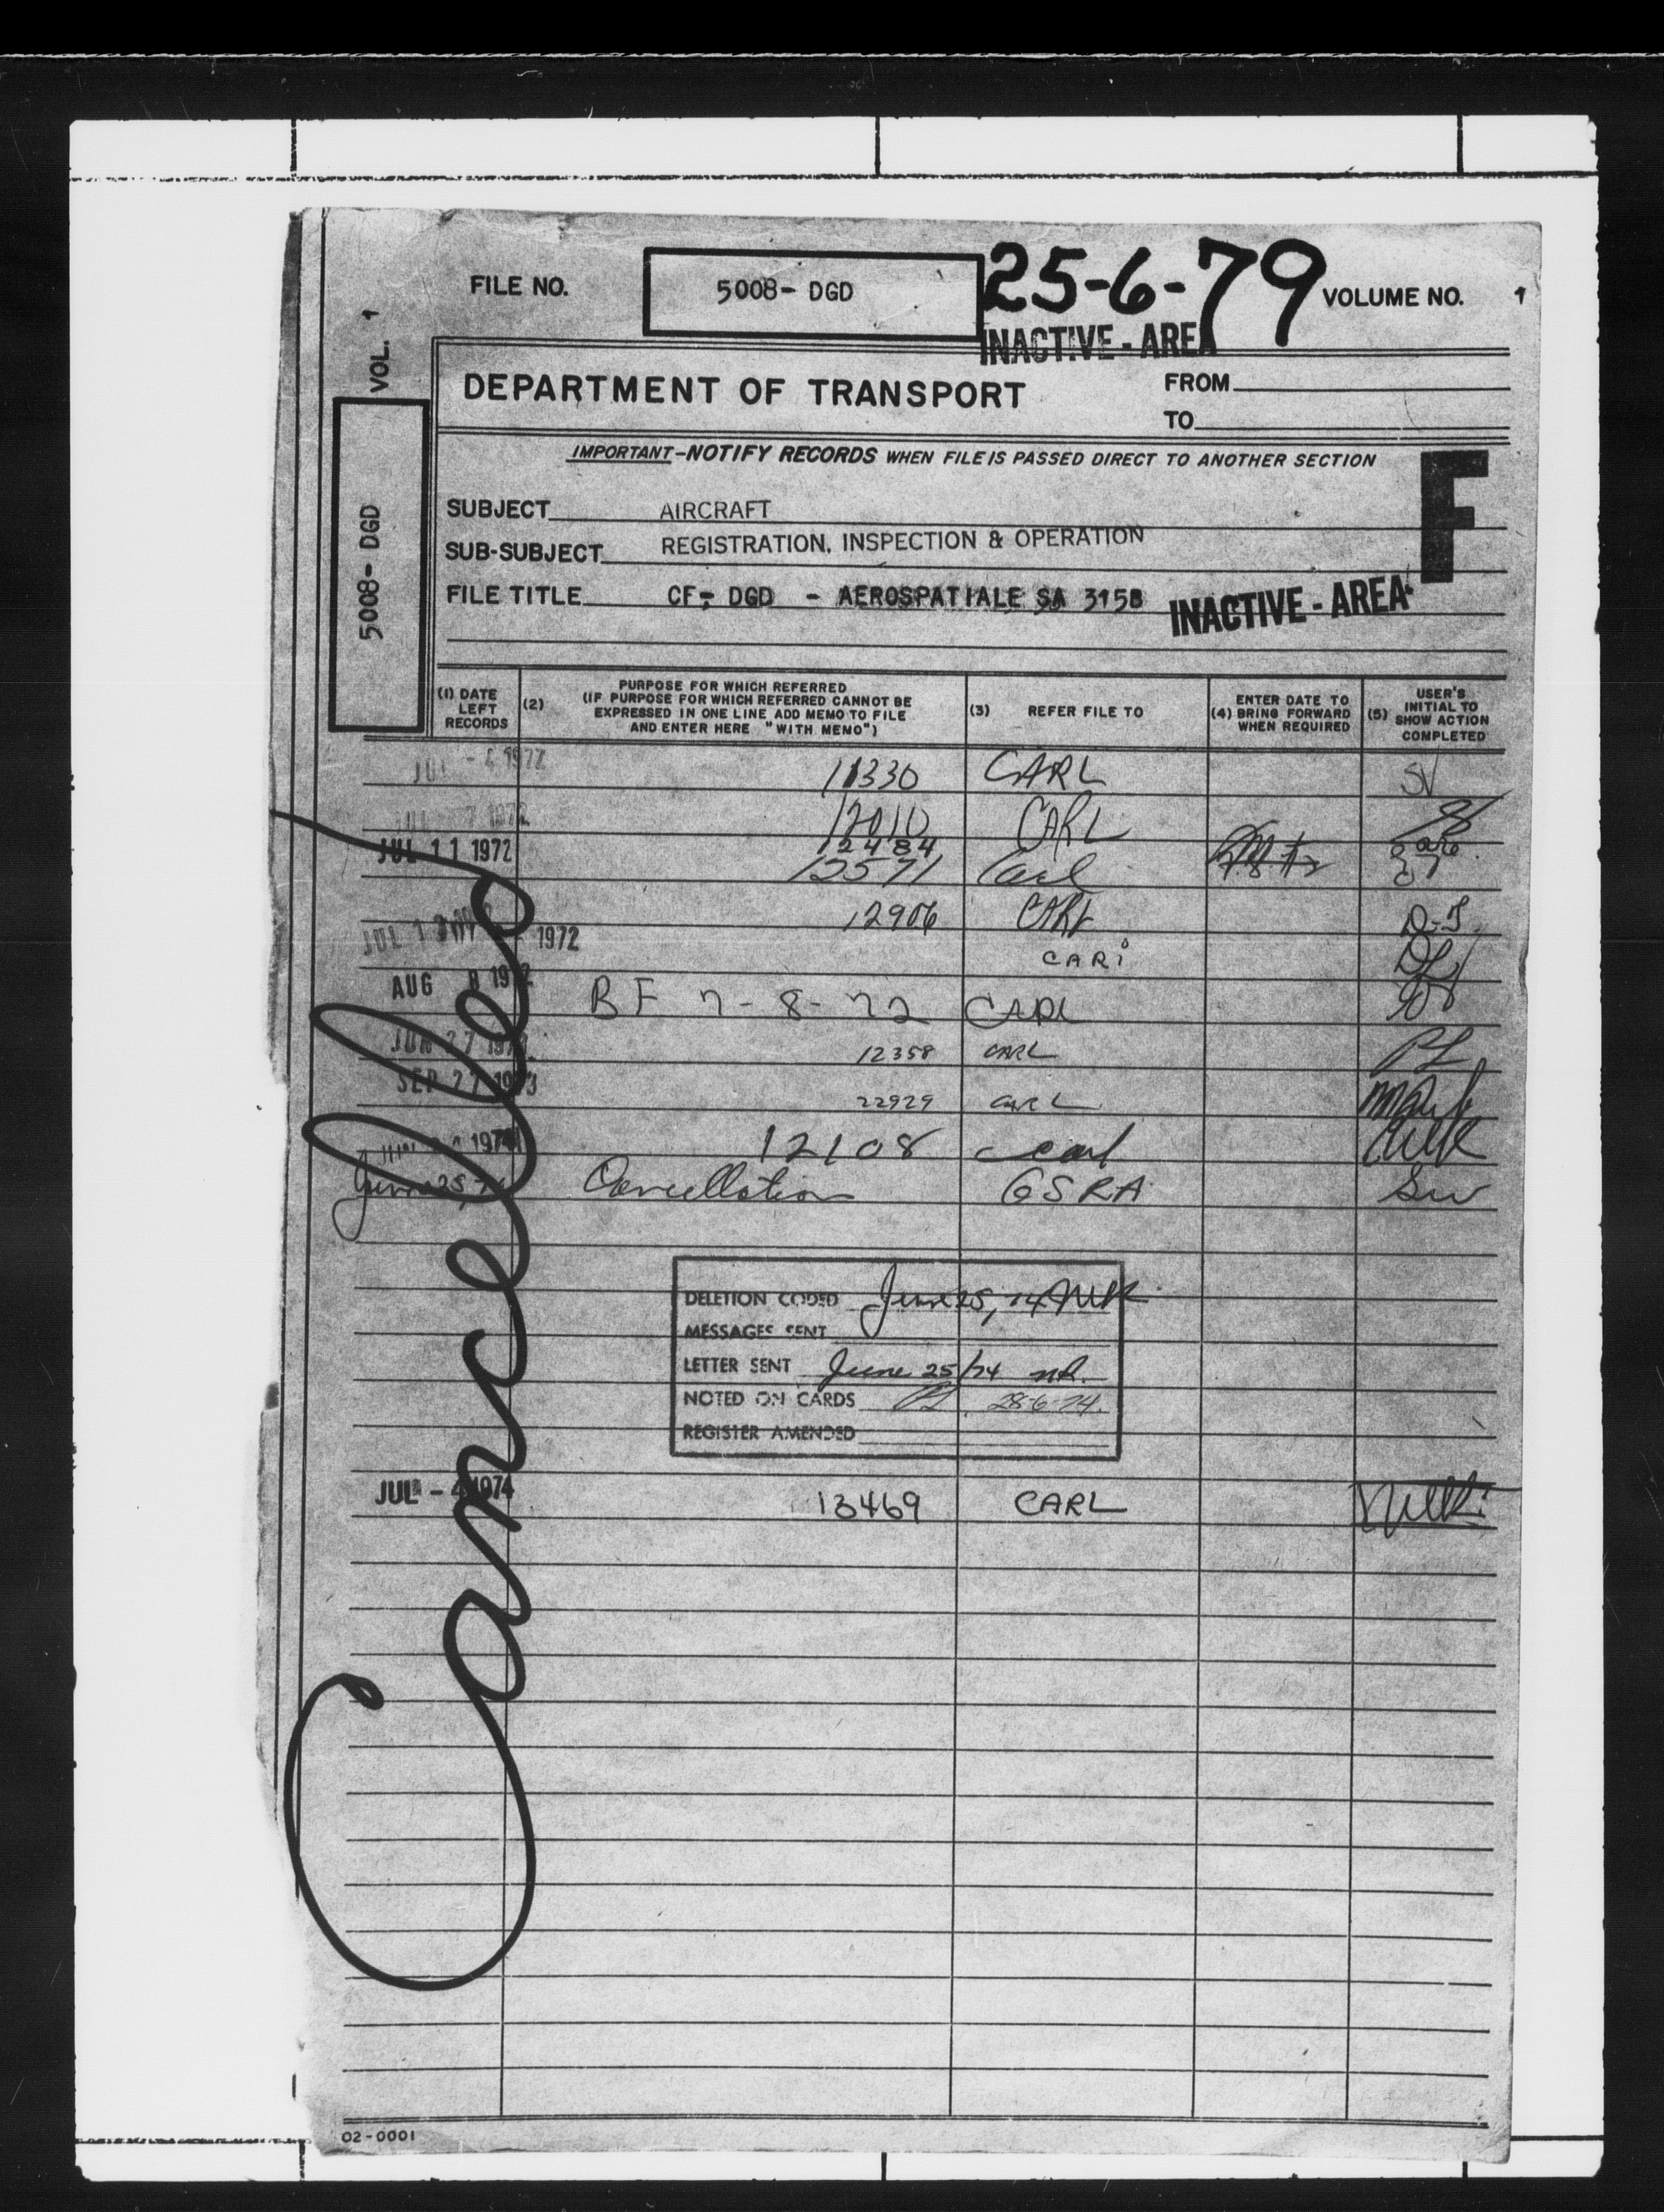 FILE NO. 5008- DGD 25-6-79 VOLUME NO. 1
INACTIVE - AREA
VOL. 1
5008- DGD
DEPARTMENT OF TRANSPORT
FROM
TO
IMPORTANT-NOTIFY RECORDS WHEN FILE IS PASSED DIRECT TO ANOTHER SECTION
F
SUBJECT AIRCRAFT
SUB-SUBJECT REGISTRATION, INSPECTION & OPERATION
FILE TITLE CF- DGD - AEROSPATIALE SA 315B
INACTIVE - AREA
(1) DATE LEFT RECORDS
(2) PURPOSE FOR WHICH REFERRED
(IF PURPOSE FOR WHICH REFERRED CANNOT BE
EXPRESSED IN ONE LINE ADD MEMO TO FILE
AND ENTER HERE "WITH MEMO")
(3) REFER FILE TO
(4) ENTER DATE TO BRING FORWARD WHEN REQUIRED
(5) USER'S INITIAL TO SHOW ACTION COMPLETED
JUL - 4 1972 11330 CARL SV
JUL 7 1972 12010 CARL
12484
JUL 11 1972 12571 Carl
JUL 12906 CARL D.J.
1972 CARL
AUG 8 1972 BF 7-8-72 CARL
JUN 27 12358 CARL PL
SEP 27 1973 22929 CARL
JUN 1974 12108 Carl MK
June 25, 74 Cancellation GSRA SW
Cancelled
DELETION CODED June 25, 74 MK
MESSAGES SENT
LETTER SENT June 25/74 MK.
NOTED ON CARDS PL. 28-6-74.
REGISTER AMENDED
JUL - 4 1974 13469 CARL
02-0001